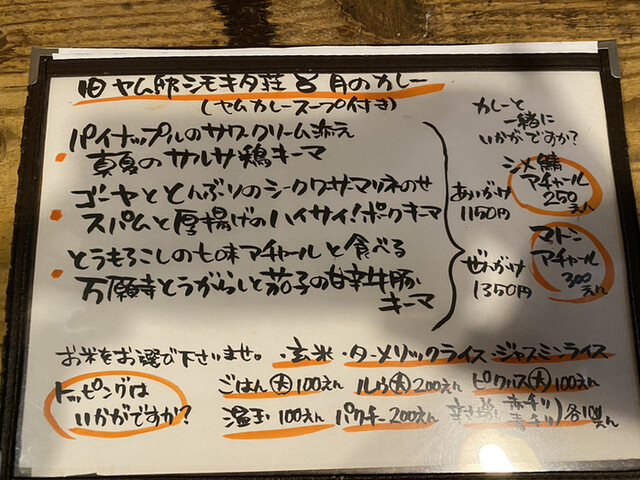 旧ヤム邸シモキタ荘 8月のカレー
(ヤムカレースープ付き)
パイナップルのサワークリーム添え
・真夏のサルサ鶏キーマ
ゴーヤととんぶりのシークワサーマリネのせ
・スパムと厚揚げのハイサイ!ポークキーマ
とうもろこしの七味アチャールと食べる
・万願寺とうがらしと茄子の甘辛牛豚
キーマ
あいがけ
1150円
ぜんがけ
1350円
カレーと
一緒に
いかがですか?
シメ鯖
アチャール
250えん
マトン
アチャール
300えん
お米をお選び下さいませ。・玄米・ターメリックライス・ジャスミンライス
トッピングは
いかがですか?
ごはん大100えん ルゥ大200えん ピクルス大100えん
温玉100えん パクチー200えん 辛さ増し 赤チリ 青チリ 各100えん